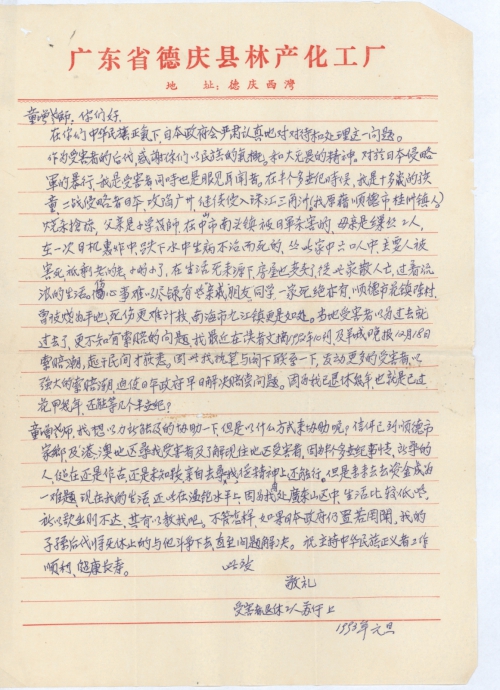 广东省德庆县林产化工厂
地 址：德庆西湾
童增老师，你们好
在你们中华民族正气下，日本政府会严肃认真地对待和处理这一问题。
作为受害者的后代，感谢你们以民族的气概，和大无畏的精神，对于日本侵略
军的暴行，我是受害者同时也是眼见耳闻者。在半个多世纪时候，我是十多岁的孩
童，二战侵略者日军攻陷广州，继侵入珠江三角洲(我原籍顺德市，桂洲镇人)
烧杀抢掠，父亲是小学教师，在中市南头镇被日军杀害的，母亲是缫丝工人，
在一次日机轰炸中，跌下水中生病不治而死的，
害死孤剩老的，小的了，在生活无来源下，房屋也卖了，使家散人亡，过着流
浪的生活。伤心事难以尽录，有些亲戚朋友，同学，一家死绝亦有，顺德市
曾被烧为平地，死伤更难计找，南海市九江镇更是如此。当地受害者以为过去就
过去了，更不知有索赔的问题，我最近在读者文摘1992年10月，及羊城晚报12月18日
索赔潮，起于民间才获悉。因此我执笔与阁下联系一下，发动更多的受害者，以
强大的索赔潮迫使日本政府早日解决赔偿问题。因为我已退休多年，也就是已过
花甲多年，还能等几个半世纪？
童增老师，我想以力所能及的协助一下，但是以什么方式来协助呢？信件已到顺德市
家乡及港，澳地区寻找受害者及了解现住地区受害者，因为半个多世纪事情，所寻的
人，健在还是作古，还是未知数，亲自去寻找，在精神上还能行。但是来来去去资金成为
一难题，现在我的生活，还处在温饱水平上，因为我处广东山区中生活比较低些，
所以款出则不达，其有以教我吧。不管怎样，如果日本政府仍置若罔闻，我的
子孙后代将无休止的与他斗争下去直至问题解决。祝主持中华民族正义者工作
顺利，健康长寿。 此致
敬礼
受害者退休工人 上
1993年元旦